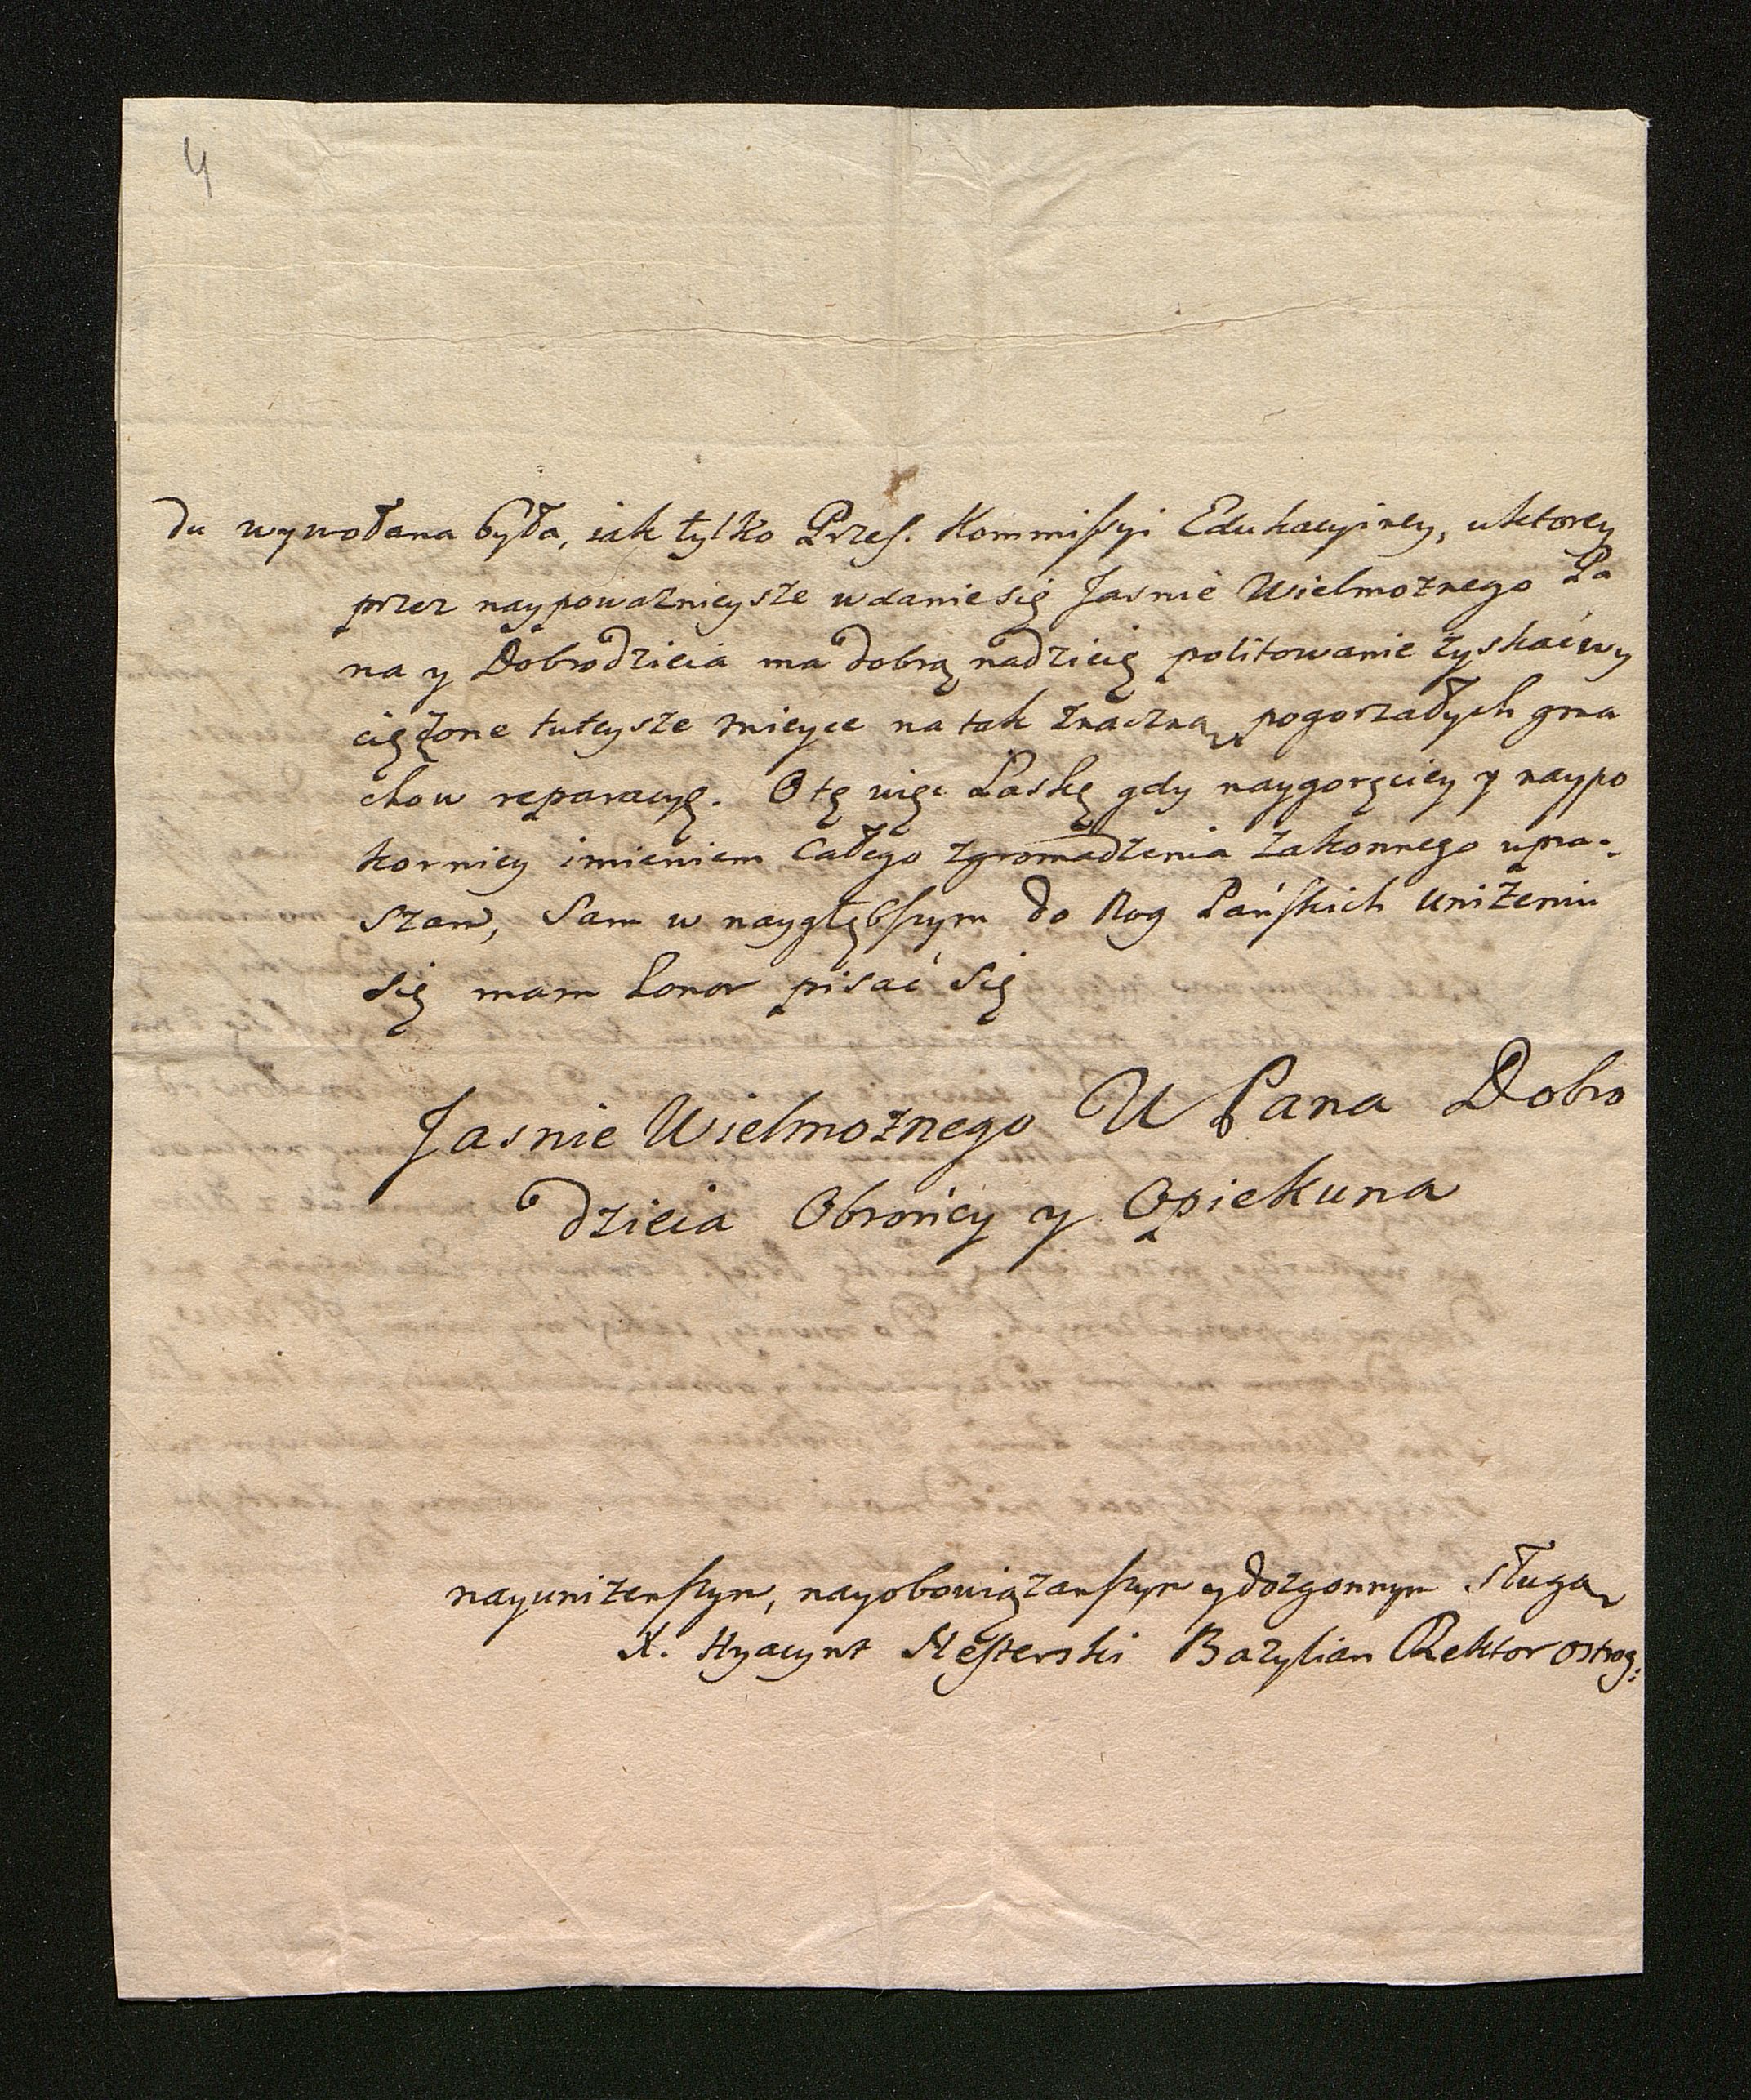 4
du wywołana była, iak tylko Przes. Kommissyi Edukacyiney, u ktorey
przez naypowaznieysze wdanie się Jasnie Wielmoznego Pa
na y Dobrodzieia ma dobrą nadzieię politowanie zyskać wy
cięzone tuteysze mieyce na tak znaczną pogorzałych gma
chow reparacyę. O tę więc Łaskę gdy naygoręciey y naypo
korniey imieniem Całego zgromadzenia zakonnego upra-
szam, Sam w naygłębszym do Nog Pańskich uniżeniu
się mam honor pisać się
Jasnie Wielmoznego W Pana Dobro
dzieia Obrońcy y Opiekuna
nayunizenszym, nayobowiązanszym y dozgonnym sługą
X. Hyacynt Nesterski Bazylian Rektor Ostrog: